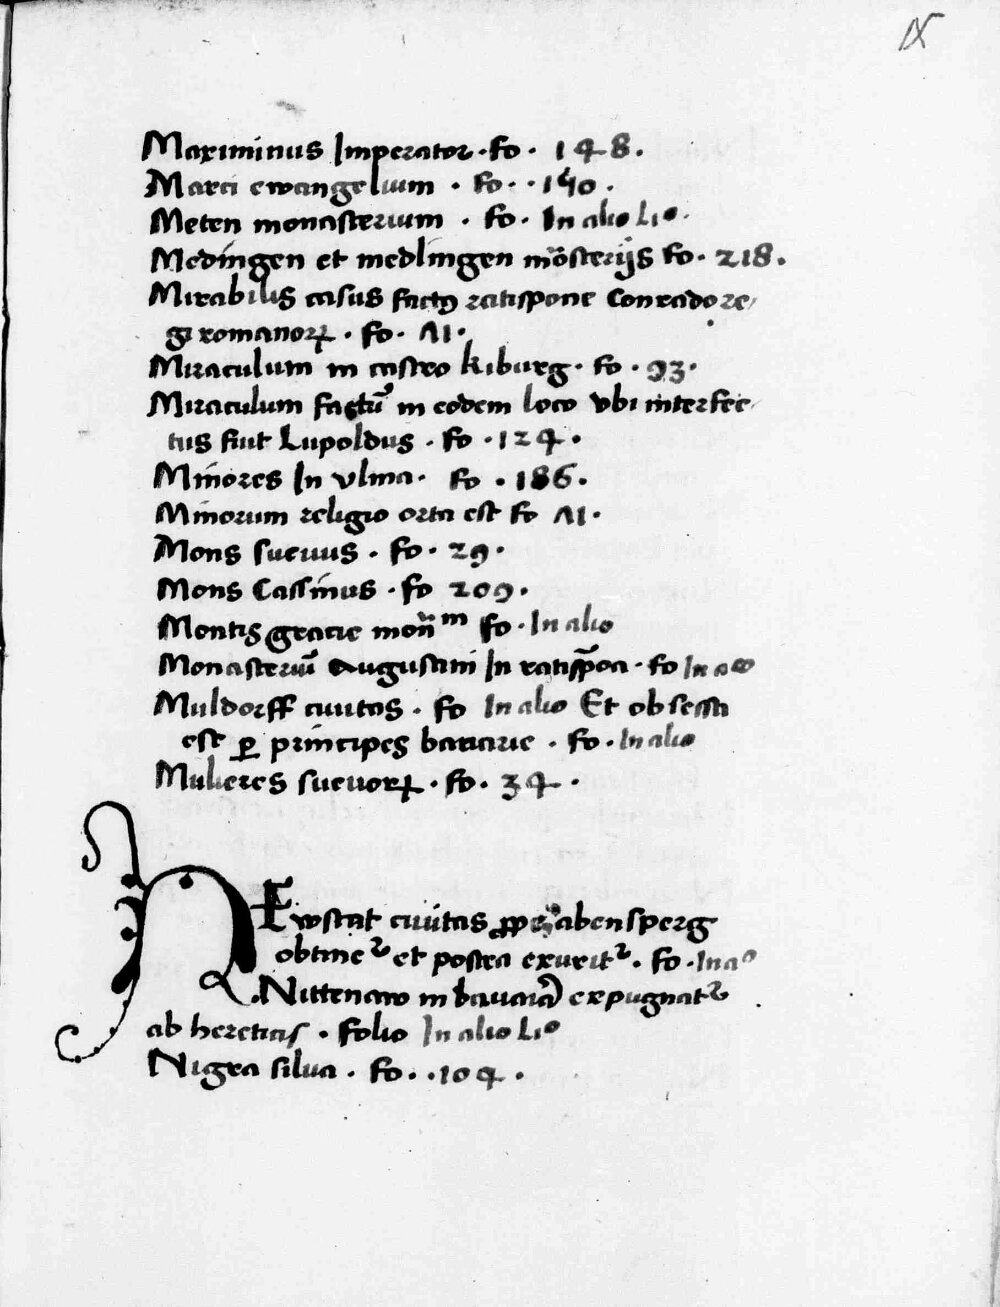 IX
Maximinus Imperator · fo · 148 ·
Marci ewangelium · fo · · 140 ·
Meten monasterium · fo · In alio Lio ·
Medingen et medlingen mōsterijs fo · 218 ·
Mirabilis casus factꝰ ratispone Conrado re/
gi romanoꝝ · fo · Λ1 ·
Miraculum in castro kiburg · fo · 93 ·
Miraculum factū in eodem loco vbi interfec/
tus fuit Lupoldus · fo · 124 ·
Minores In vlma · fo · 186 ·
Minorum religio orta est fo Λ1 ·
Mons suevus · fo · 29 ·
Mons Cassinus · fo 209 ·
Montis gracie mon̄m fo · In alio
Monasteriū Augustini In ratispōa · fo In ao
Muldorff ciuitas · fo In alio Et obsessa
est ꝑ principes bavarie · fo · In alio
Mulieres suevoꝝ · fo · 34 ·
NEwstat ciuitas abensperg
obtinet᷑ et postea exurit᷑ · fo · In ao
Nittenaw in bavaria expugnat᷑
ab hereticis · folio In alio Lio
Nigra silua · fo · · 104 ·